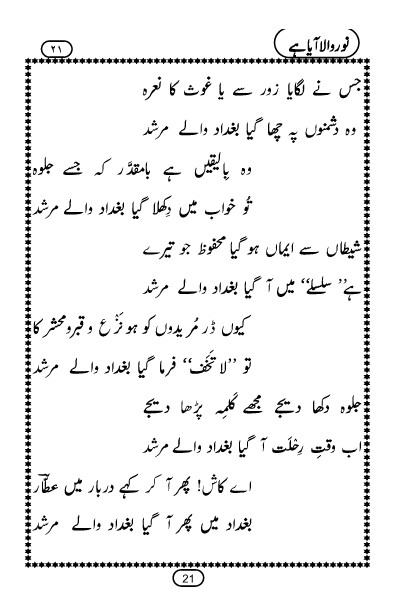 نور والا آیا ہے
۲۱
جس نے لگایا زور سے یا غوث کا نعرہ
وہ دشمنوں پہ چھا گیا بغداد والے مرشد
وہ بِالیقیں ہے بامقدَّر کہ جسے جلوہ
تُو خواب میں دِکھلا گیا بغداد والے مرشد
شیطاں سے ایماں ہو گیا محفوظ جو تیرے
ہے’’ سلسلے‘‘ میں آ گیا بغداد والے مرشد
کیوں ڈر مُریدوں کو ہو نَزْع و قبر ومحشر کا
تو ’’لا تَخَف‘‘ فرما گیا بغداد والے مرشد
جلوہ دکھا دیجے مجھے کَلِمہ پڑھا دیجے
اب وقتِ رِحْلَت آ گیا بغداد والے مرشد
اے کاش! پھر آ کر کہے دربار میں عطّارؔ
بغداد میں پھر آ گیا بغداد والے مرشد
21